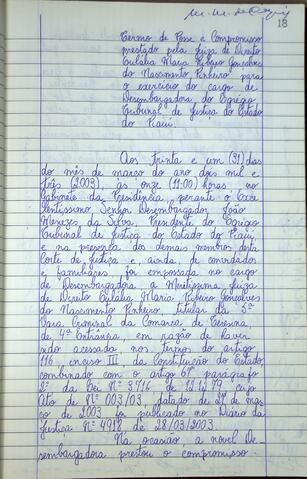 18
Termo de Posse e Compromisso
prestado pela Juíza de Direito
Eulália Maria Ribeiro Gonçalves
do Nascimento Pinheiro para
o exercício do cargo de
Desembargadora do Egrégio
Tribunal de Justiça do Estado
do Piauí.
Aos trinta e um (31) dias
do mês de março do ano dois mil e
três (2003), às onze (11:00) horas, no
Gabinete da Presidência, perante o Exce
lentíssimo Senhor Desembargador João
Menezes da Silva, Presidente do Egrégio
Tribunal de Justiça do Estado do Piauí,
e na presença dos demais membros desta
Corte de Justiça e, ainda, de convidados
e familiares, foi empossada no cargo
de Desembargadora a Meritíssima Juíza
de Direito Eulália Maria Ribeiro Gonçalves
do Nascimento Pinheiro, titular da
Vara Criminal da Comarca de Teresina
de 4ª Entrância, em razão de haver
sido acessada nos termos do artigo
116, inciso III, da Constituição do Estado,
combinado com o artigo 61, parágrafo
2º da Lei Nº 3.716 de 12.12.79, cujo
Ato de Nº 003/03, datado de 27 de mar
ço de 2003, foi publicado no Diário da
Justiça Nº 4918 de 28/03/2003.
Na ocasião, a novel De
sembargadora prestou o compromisso